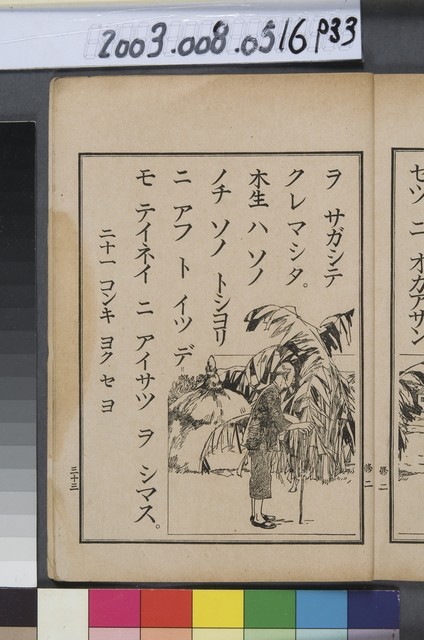 2003.008.0516 P33
セツ ニ オカアサン
修二
ヲ サガシテ
クレマシタ。
木生 ハ ソノ
ノチ ソノ トシヨリ
ニ アフ ト イツ デ
モ テイネイ ニ アイサツ ヲ シマス。
二十一 コンキ ヨク セヨ
修二
三十三